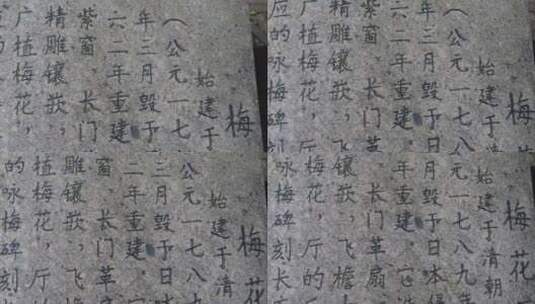 梅
始建于
（公元一七
年三月毁予
六二年重建
紫窗、长门
精雕镶嵌，
广植梅花，
梅
始建于
（公元一七八
年三月毁予日
六二年重建
紫窗、长门革
精雕镶嵌，飞
广植梅花，厅
应的咏梅碑刻
梅花
始建于清
公元一七八
三月毁予日
二年重建，
窗、长门革
雕镶嵌，飞
植梅花，厅
的咏梅碑刻
梅花
始建于清朝
公元一七八九
三月毁予日本
二年重建，它
、长门革扇
镶嵌，飞檐
梅花，厅的
咏梅碑刻长